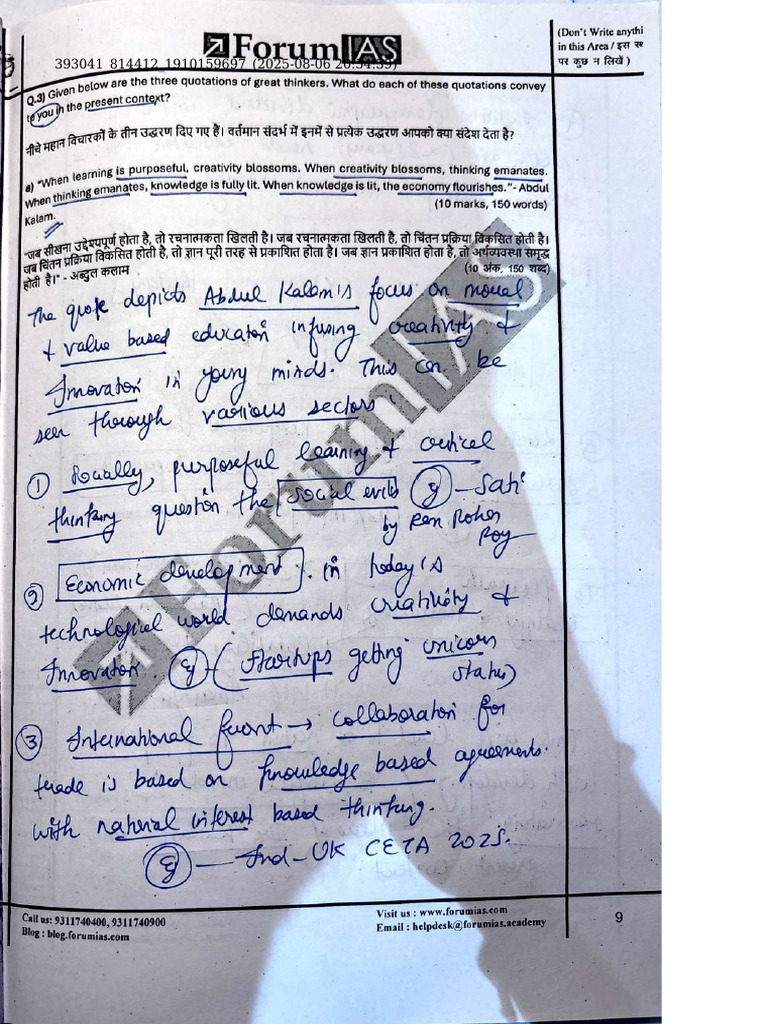 Forum IAS
393041 814412 1910159697 (2025-08-06 20:34:39)
(Don't Write anythi
in this Area / इस स्थ
पर कुछ न लिखें )
Q.3) Given below are the three quotations of great thinkers. What do each of these quotations convey
to you in the present context?
नीचे महान विचारकों के तीन उद्धरण दिए गए हैं। वर्तमान संदर्भ में इनमें से प्रत्येक उद्धरण आपको क्या संदेश देता है?
a) "When learning is purposeful, creativity blossoms. When creativity blossoms, thinking emanates.
When thinking emanates, knowledge is fully lit. When knowledge is lit, the economy flourishes."- Abdul
Kalam.
(10 marks, 150 words)
"जब सीखना उद्देश्यपूर्ण होता है, तो रचनात्मकता खिलती है। जब रचनात्मकता खिलती है, तो चिंतन प्रक्रिया विकसित होती है।
जब चिंतन प्रक्रिया विकसित होती है, तो ज्ञान पूरी तरह से प्रकाशित होता है। जब ज्ञान प्रकाशित होता है, तो अर्थव्यवस्था समृद्ध
होती है।" - अब्दुल कलाम
(10 अंक, 150 शब्द)
The quote depicts Abdul Kalam's focus on moral
& value based education infusing creativity &
Innovation in young minds. This can be
seen through various sectors:
① Socially, purposeful learning & critical
thinking question the social evils eg - Sati
by Ram Mohan
Roy
② Economic development. in today's
technological world demands creativity &
Innovation. eg - (startups getting unicorn
status)
③ International front → collaboration for
trade is based on knowledge based agreements.
with national interest based thinking.
eg — Ind - UK CETA 2025.
Call us: 9311740400, 9311740900
Blog : blog.forumias.com
Visit us : www.forumias.com
Email : helpdesk@forumias.academy
9
ForumIAS